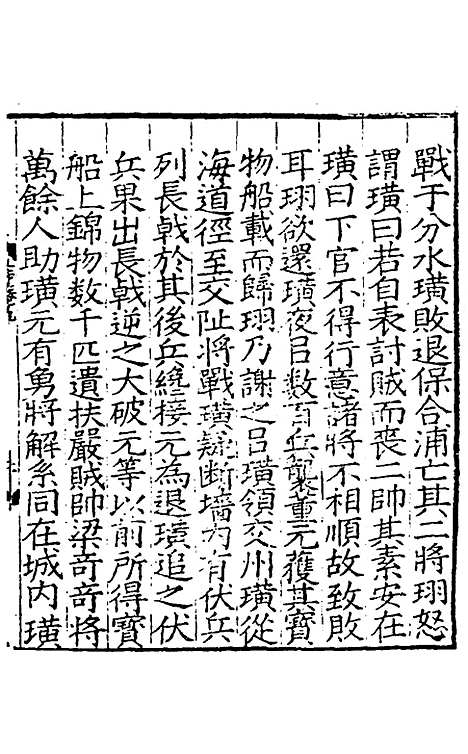 戰于分水璜敗退保合浦亡其二將珝怒
謂璜曰若自表討賊而喪二帥其責安在
璜曰下官不得行意諸將不相順故致敗
耳珝欲還璜夜以數百兵襲董元獲其寶
物船載而歸珝乃謝之以璜領交州璜從
海道徑至交阯將戰璜疑斷墻內有伏兵
列長戟於其後兵纔接元為退璜追之伏
兵果出長戟逆之大破元等以前所得寶
船上錦物数千匹遺扶嚴賊帥梁奇奇將
萬餘人助璜元有勇將解系同在城内璜